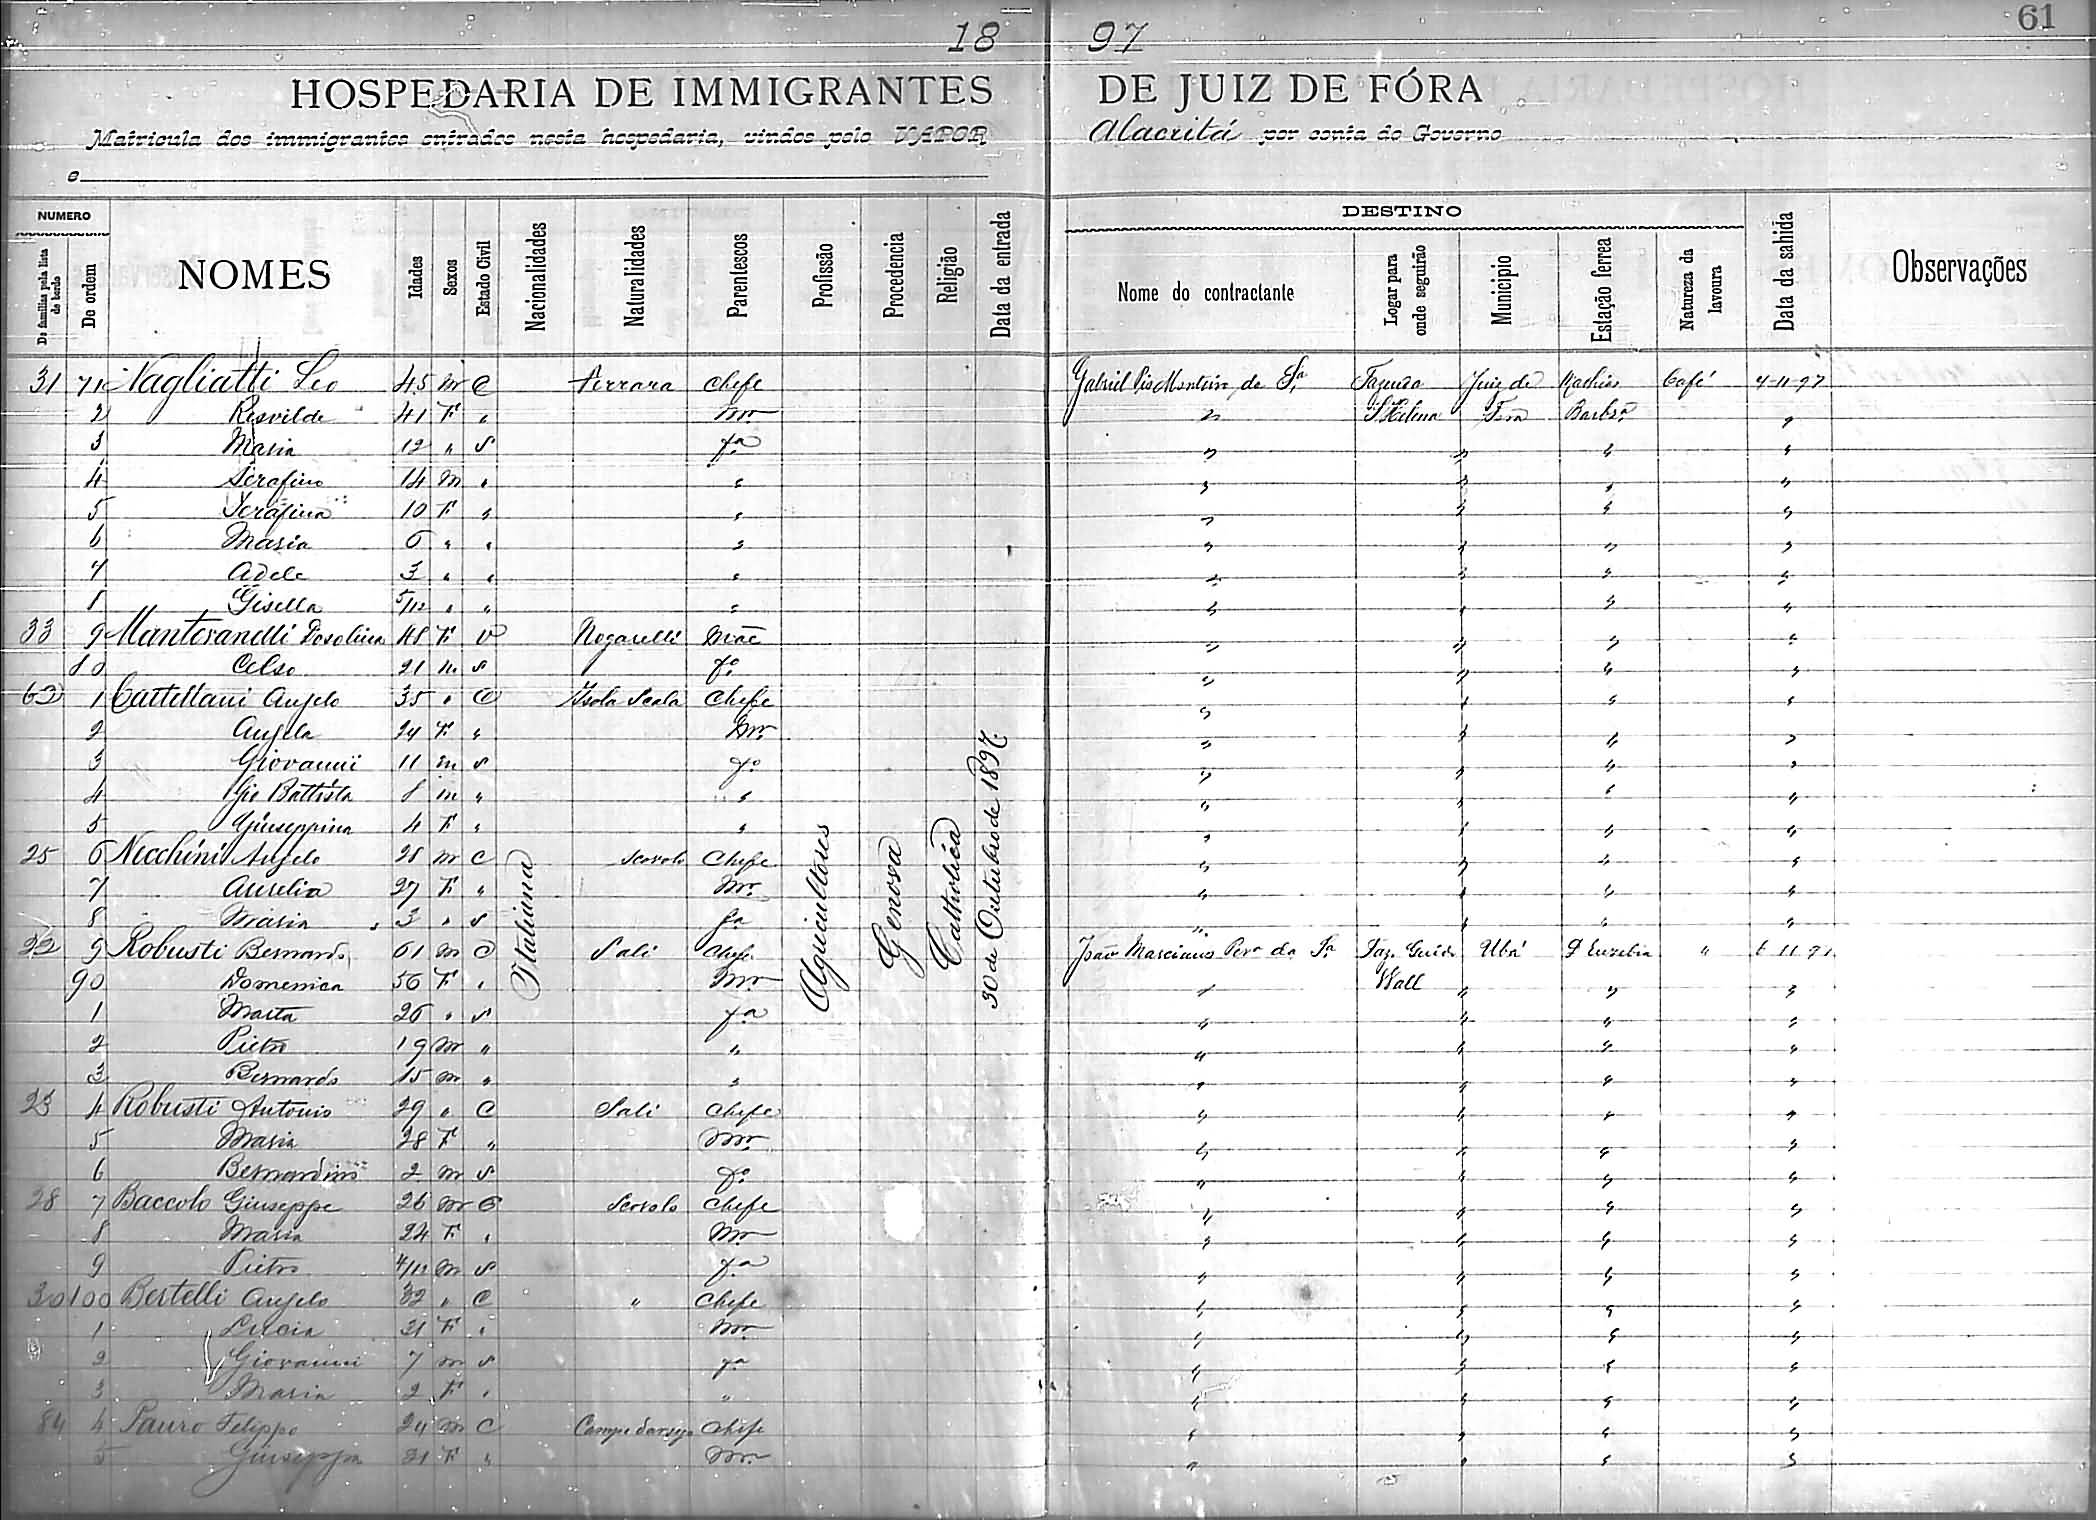 61
18 97
HOSPEDARIA DE IMMIGRANTES DE JUIZ DE FÓRA
Matricula dos immigrantes entrados nesta hospedaria, vindos pelo VAPOR Alacritá por conta do Governo
e
NUMERO DESTINO
De familias pela lista de bordo De ordem NOMES Idades Sexos Estado Civil Nacionalidades Naturalidades Parentescos Profissão Procedencia Religião Data da entrada Nome do contractante Logar para onde seguirão Municipio Estação ferrea Natureza da lavoura Data da sahida Observações
31 71 Vagliatti Leo 45 m C Ferrara Chefe Gabriel Pio Monteiro da Sa Fazenda Juiz de Mathias Café 4-11-97
2 Resvilde 41 F " mr. " S Helena Fora Barbsa "
3 Maria 12 " S fa " " " "
4 Serafino 14 m " " " " " "
5 Serafina 10 F " " " " " "
6 Maria 6 " " " " " " "
7 Adele 3 " " " " " " "
8 Gisella 5/12 " " " " " " "
33 9 Mantovanelli Dosolina 48 F V Nogarelli Mãe " " " "
80 Celso 21 m S fo " " " "
63 1 Castellani Angelo 35 " C Isola Scala Chefe " " " "
2 Angela 24 F " Mr. " " " "
3 Giovanni 11 m S fo " " " "
4 Gio Battista 8 m " " " " " "
5 Giuseppina 4 F " " " " " "
25 6 Necchini Angelo 28 m C Scorolo Chefe " " " "
7 Aurelia 27 F " Mr. " " " "
8 Maria 3 " S fa " " " "
Italiana Agricultores Genova Catholica 30 de Outubro de 1897.
22 9 Robusti Bernardo 61 m C Sali Chefe João Marciano Pera da Sa Faz. Guido Ubá D Euzebia " 6 11 97
90 Domenica 56 F " Mr " Wall " " "
1 Marta 26 " S fa " " " "
2 Pietro 19 m " " " " " "
3 Bernardo 15 m " " " " " "
23 4 Robusti Antonio 29 " C Sali Chefe " " " "
5 Maria 28 F " Mr " " " "
6 Bernardino 2 m S fo " " " "
28 7 Baccolo Giuseppe 26 m C Scorolo Chefe " " " "
8 Maria 24 F " Mr " " " "
9 Pietro 4/12 m S fa " " " "
30 100 Bestelli Angelo 32 " C " Chefe " " " "
1 Lucia 31 F " Mr " " " "
2 Giovanni 7 m S fa " " " "
3 Maria 2 F " " " " " "
84 4 Pauro Felippo 24 m C Chefe " " " "
5 Giuseppa 21 F " Mr " " " "